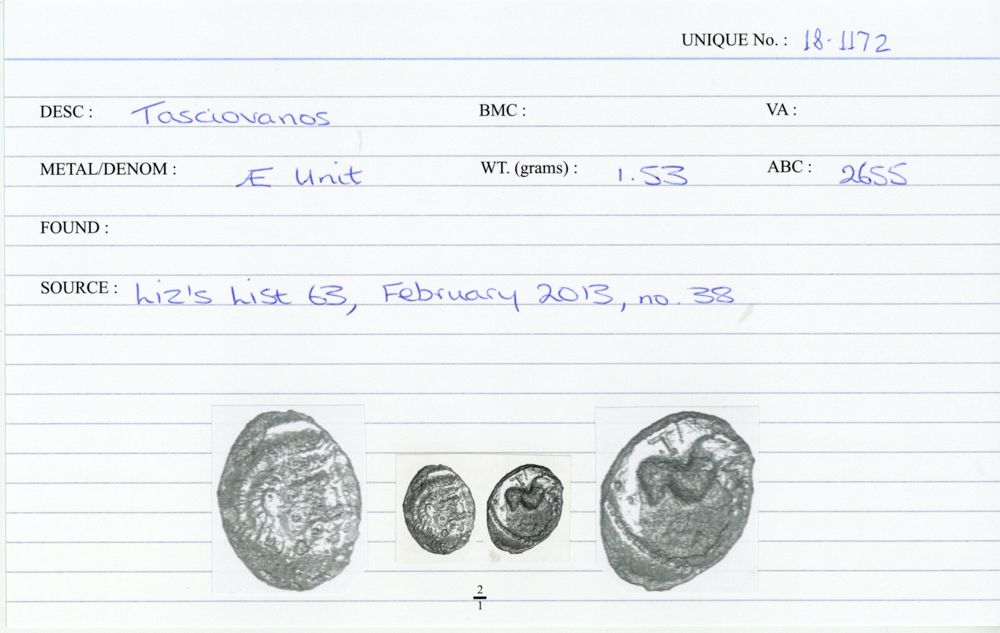 UNIQUE No. : 18-1172
DESC : Tasciovanos BMC : VA :
METAL/DENOM : Æ Unit WT. (grams) : 1.53 ABC : 2655
FOUND :
SOURCE : Liz's List 63, February 2013, no. 38
2
1